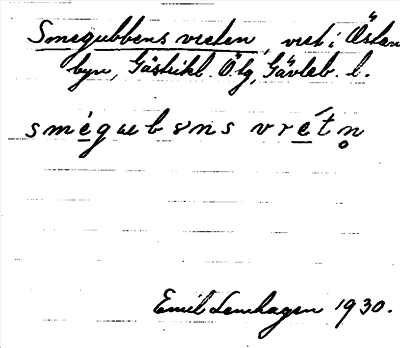 Smegubbens vreten, vret i Östan
byn, Gästrikl. Ötg, Gävleb. l.
smégɯbəns vrétn̥
Emil Lenhagen 1930.